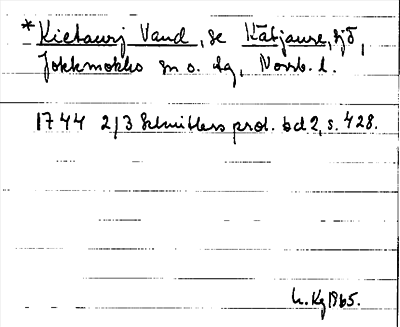 *Kietaurj Vand, se Kätjaure, sjö,
Jokkmokks sn o. dg, Norrb. l.
1744 2/3 Schnitlers prot. bd 2, s. 428.
1965.